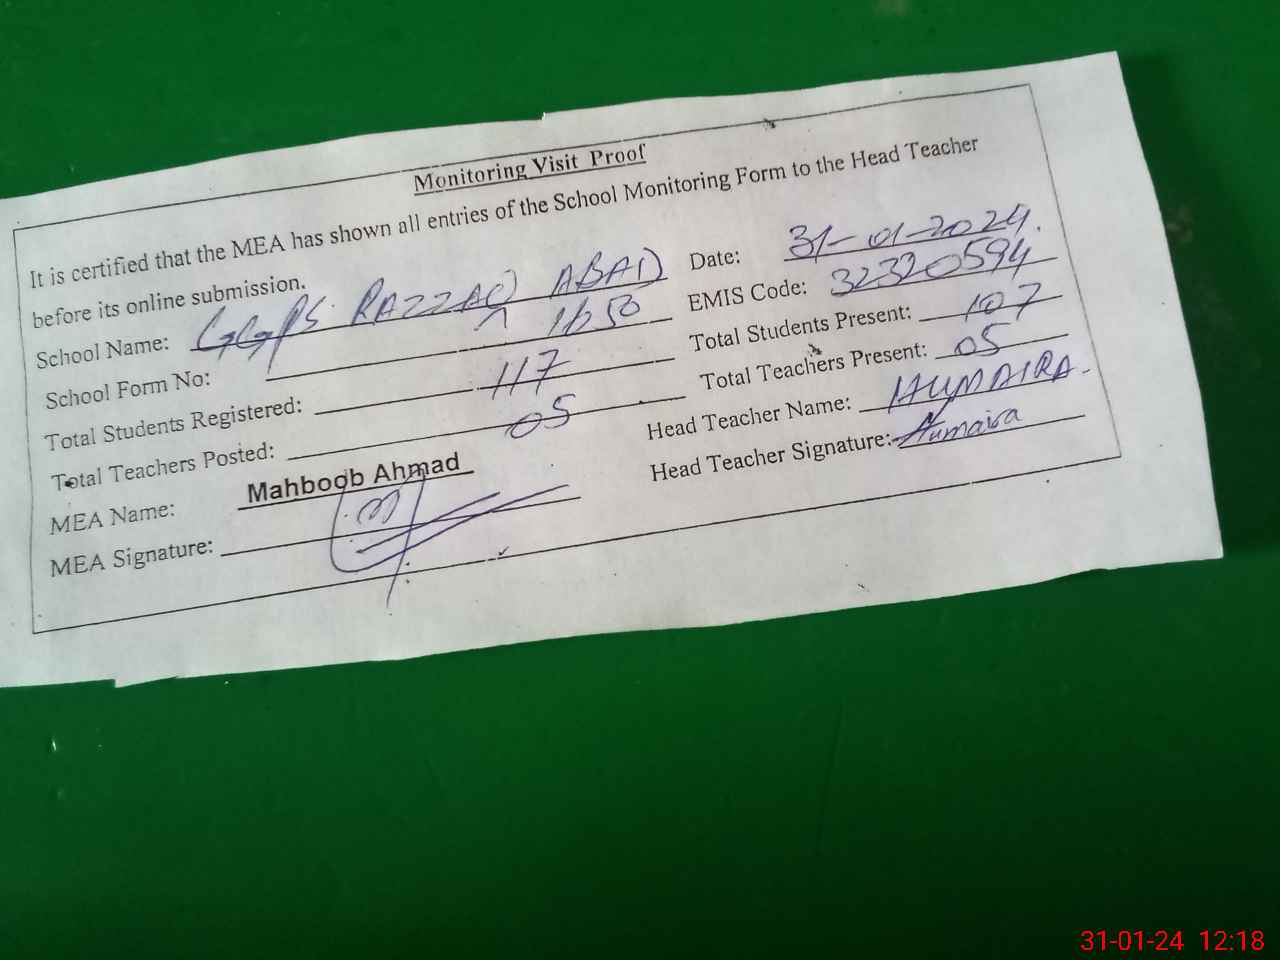 Monitoring Visit Proof
It is certified that the MEA has shown all entries of the School Monitoring Form to the Head Teacher
before its online submission.
Date: 31-01-2024.
School Name: GGPS. RAZZAQ ABAD
EMIS Code: 32320594
School Form No: 1650
Total Students Present: 107
Total Students Registered: 117
Total Teachers Present: 05
Total Teachers Posted: 05
Head Teacher Name: HUMAIRA.
MEA Name: Mahboob Ahmad
Head Teacher Signature: Humaira
MEA Signature:
31-01-24 12:18